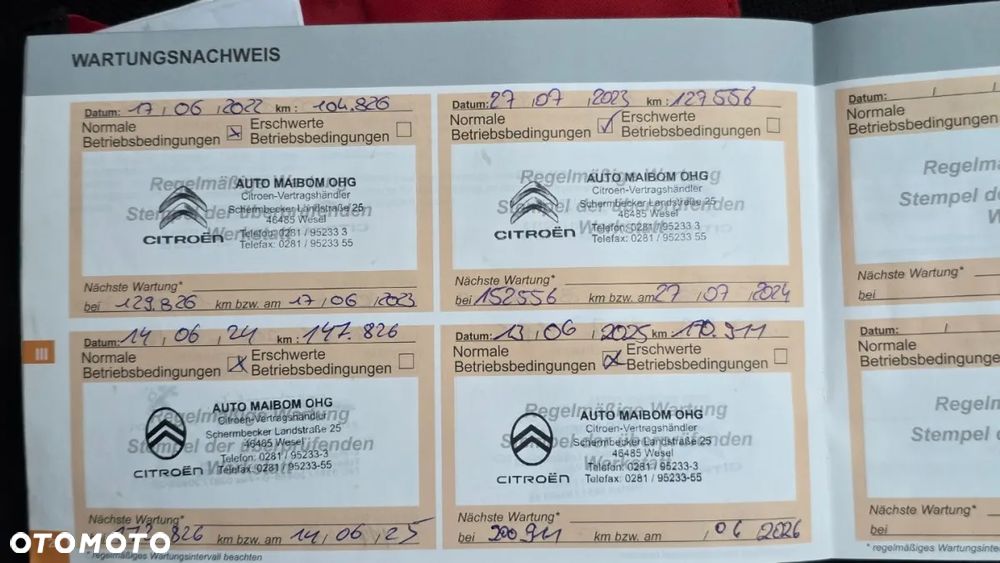 WARTUNGSNACHWEIS
Datum: 17 , 06 , 2022 km : 104.826
Normale Betriebsbedingungen
Erschwerte Betriebsbedingungen
Regelmäßige Wartung
Stempel der überprüfenden
Werkstatt
AUTO MAIBOM OHG
Citroen-Vertragshändler
Schermbecker Landstraße 25
46485 Wesel
Telefon: 0281 / 95233 3
Telefax: 0281 / 95233 55
CITROËN
Nächste Wartung*
bei 129.826 km bzw. am 17 , 06 , 2023
Datum: 27 , 07 , 2023 km : 127556
Normale Betriebsbedingungen
Erschwerte Betriebsbedingungen
Regelmäßige Wartung
Stempel der überprüfenden
Werkstatt
AUTO MAIBOM OHG
Citroen-Vertragshändler
Schermbecker Landstraße 25
46485 Wesel
Telefon: 0281 / 95233 3
Telefax: 0281 / 95233 55
CITROËN
Nächste Wartung*
bei 152556 km bzw. am 27 , 07 , 2024
Datum: / /
Normale
Betriebsbedingungen
Regelm
Stempel d
Nächste Wartung*
bei
III
Datum: 14 , 06 , 24 km : 147.826
Normale Betriebsbedingungen
Erschwerte Betriebsbedingungen
Regelmäßige Wartung
Stempel der überprüfenden
Werkstatt
AUTO MAIBOM OHG
Citroen-Vertragshändler
Schermbecker Landstraße 25
46485 Wesel
Telefon: 0281 / 95233-3
Telefax: 0281 / 95233-55
CITROËN
Nächste Wartung*
172.826 km bzw. am 14 , 06 , 25
* regelmäßiges Wartungsintervall beachten
Datum: 13 , 06 , 2025 km : 170.911
Normale Betriebsbedingungen
Erschwerte Betriebsbedingungen
Regelmäßige Wartung
Stempel der überprüfenden
Werkstatt
AUTO MAIBOM OHG
Citroen-Vertragshändler
Schermbecker Landstraße 25
46485 Wesel
Telefon: 0281 / 95233-3
Telefax: 0281 / 95233-55
CITROËN
Nächste Wartung*
bei 200911 km bzw. am , 06 , 2026
Datum: / /
Normale
Betriebsbedingungen
Regeln
Stempel d
Nächste Wartung*
bei
* regelmäßiges Wartungsinterv
OTOMOTO